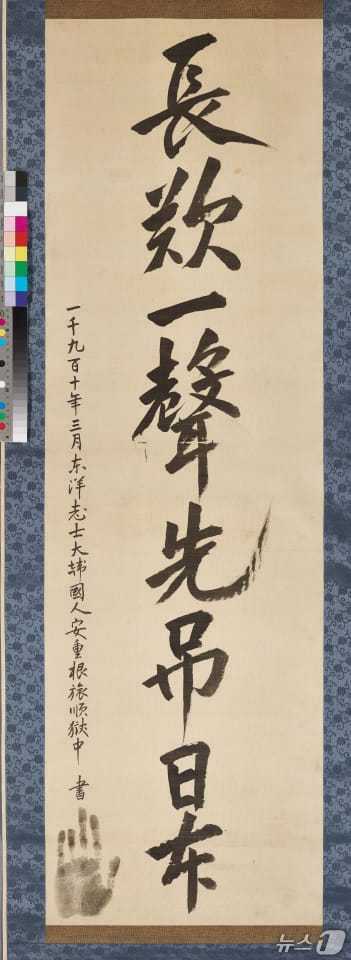 長歎一聲先吊日本
一千九百十年三月東洋志士大韓國人安重根旅順獄中 書
뉴스1